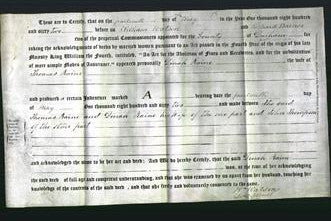 These are to Certify, that on the fourteenth day of May in the Year One thousand eight hundred
and sixty two before us William Watson and
two of the perpetual Commissioners appointed for the County of Durham for
taking the acknowledgments of deeds by married women pursuant to an Act passed in the Fourth Year of the reign of his late
Majesty King William the Fourth, intituled "An Act for the Abolition of Fines and Recoveries, and for the substitution
of more simple Modes of Assurance," appeared personally Dinah Raine the wife of
Thomas Raine
and produced a certain Indenture marked A bearing date the fourteenth day
of May One thousand eight hundred and sixty two and made between the said
Thomas Raine and Dinah Raine his wife of the one part and John Thompson
of the other part
and acknowledged the same to be her act and deed: And We do hereby Certify, that the said Dinah Raine
was, at the time of her acknowledging
the said deed, of full age and competent understanding, and that she was examined by us apart from her husband, touching her
knowledge of the contents of the said deed, and that she freely and voluntarily consented to the same.
Watson